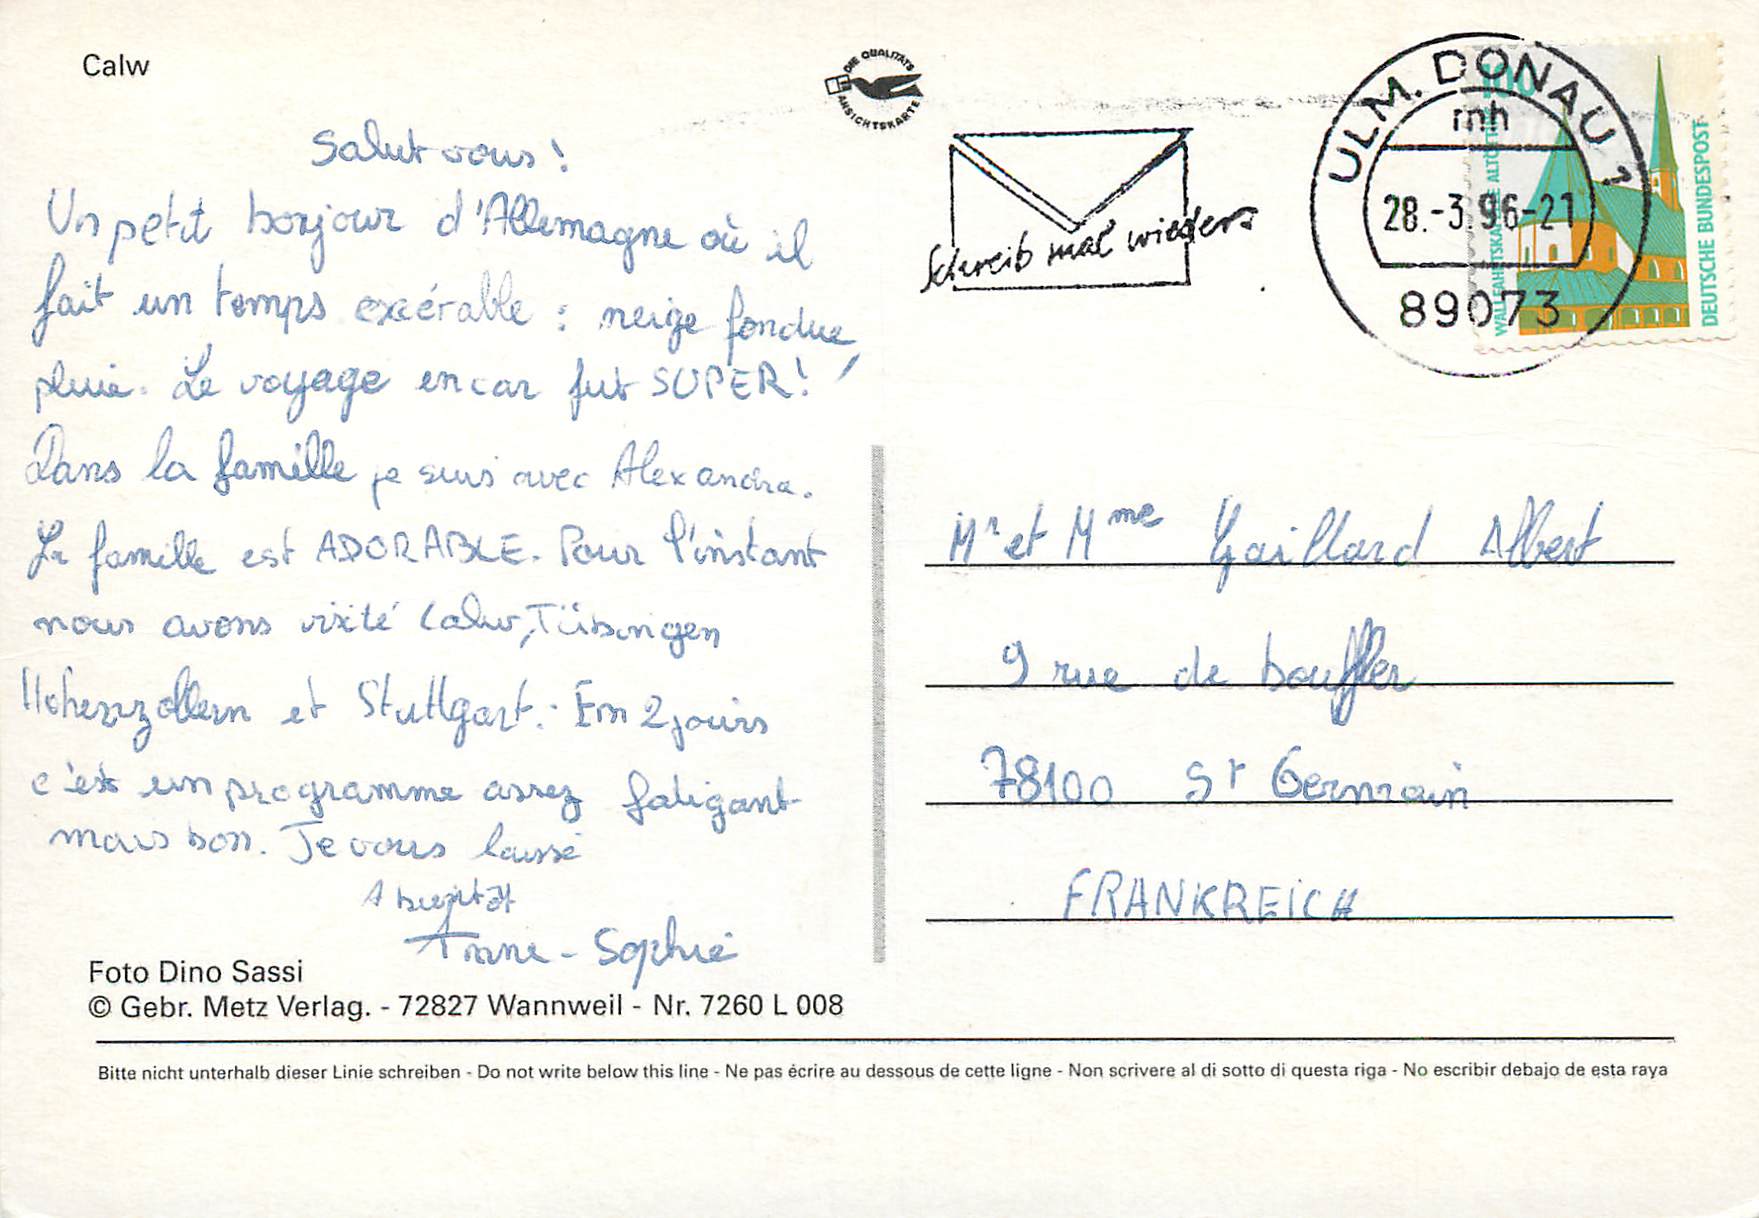 Calw
DIE QUALITÄTS
ANSICHTSKARTE
Salut vous !
Un petit bonjour d'Allemagne où il
fait un temps exécrable : neige fondue,
pluie. Le voyage en car fut SUPER !
Dans la famille je suis avec Alexandra.
La famille est ADORABLE. Pour l'instant
nous avons visité Calw, Tübingen
Hohenzollern et Stuttgart. En 2 jours
c'est un programme assez fatigant
mais bon. Je vous laisse
A bientôt
Anne-Sophie
Foto Dino Sassi
© Gebr. Metz Verlag. - 72827 Wannweil - Nr. 7260 L 008
Schreib mal wieder
ULM. DONAU 1
mh
28.-3.96-21
89073
100
WALLFAHRTSKAPELLE ALTÖTTING
DEUTSCHE BUNDESPOST
Mr et Mme Gaillard Albert
9 rue de bouffler
78100 St Germain
FRANKREICH
Bitte nicht unterhalb dieser Linie schreiben - Do not write below this line - Ne pas écrire au dessous de cette ligne - Non scrivere al di sotto di questa riga - No escribir debajo de esta raya